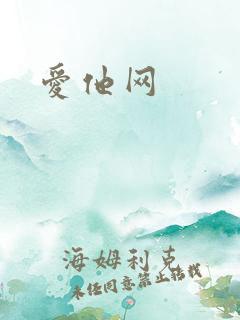 愛他网
海姆利克
未经同意禁止转载